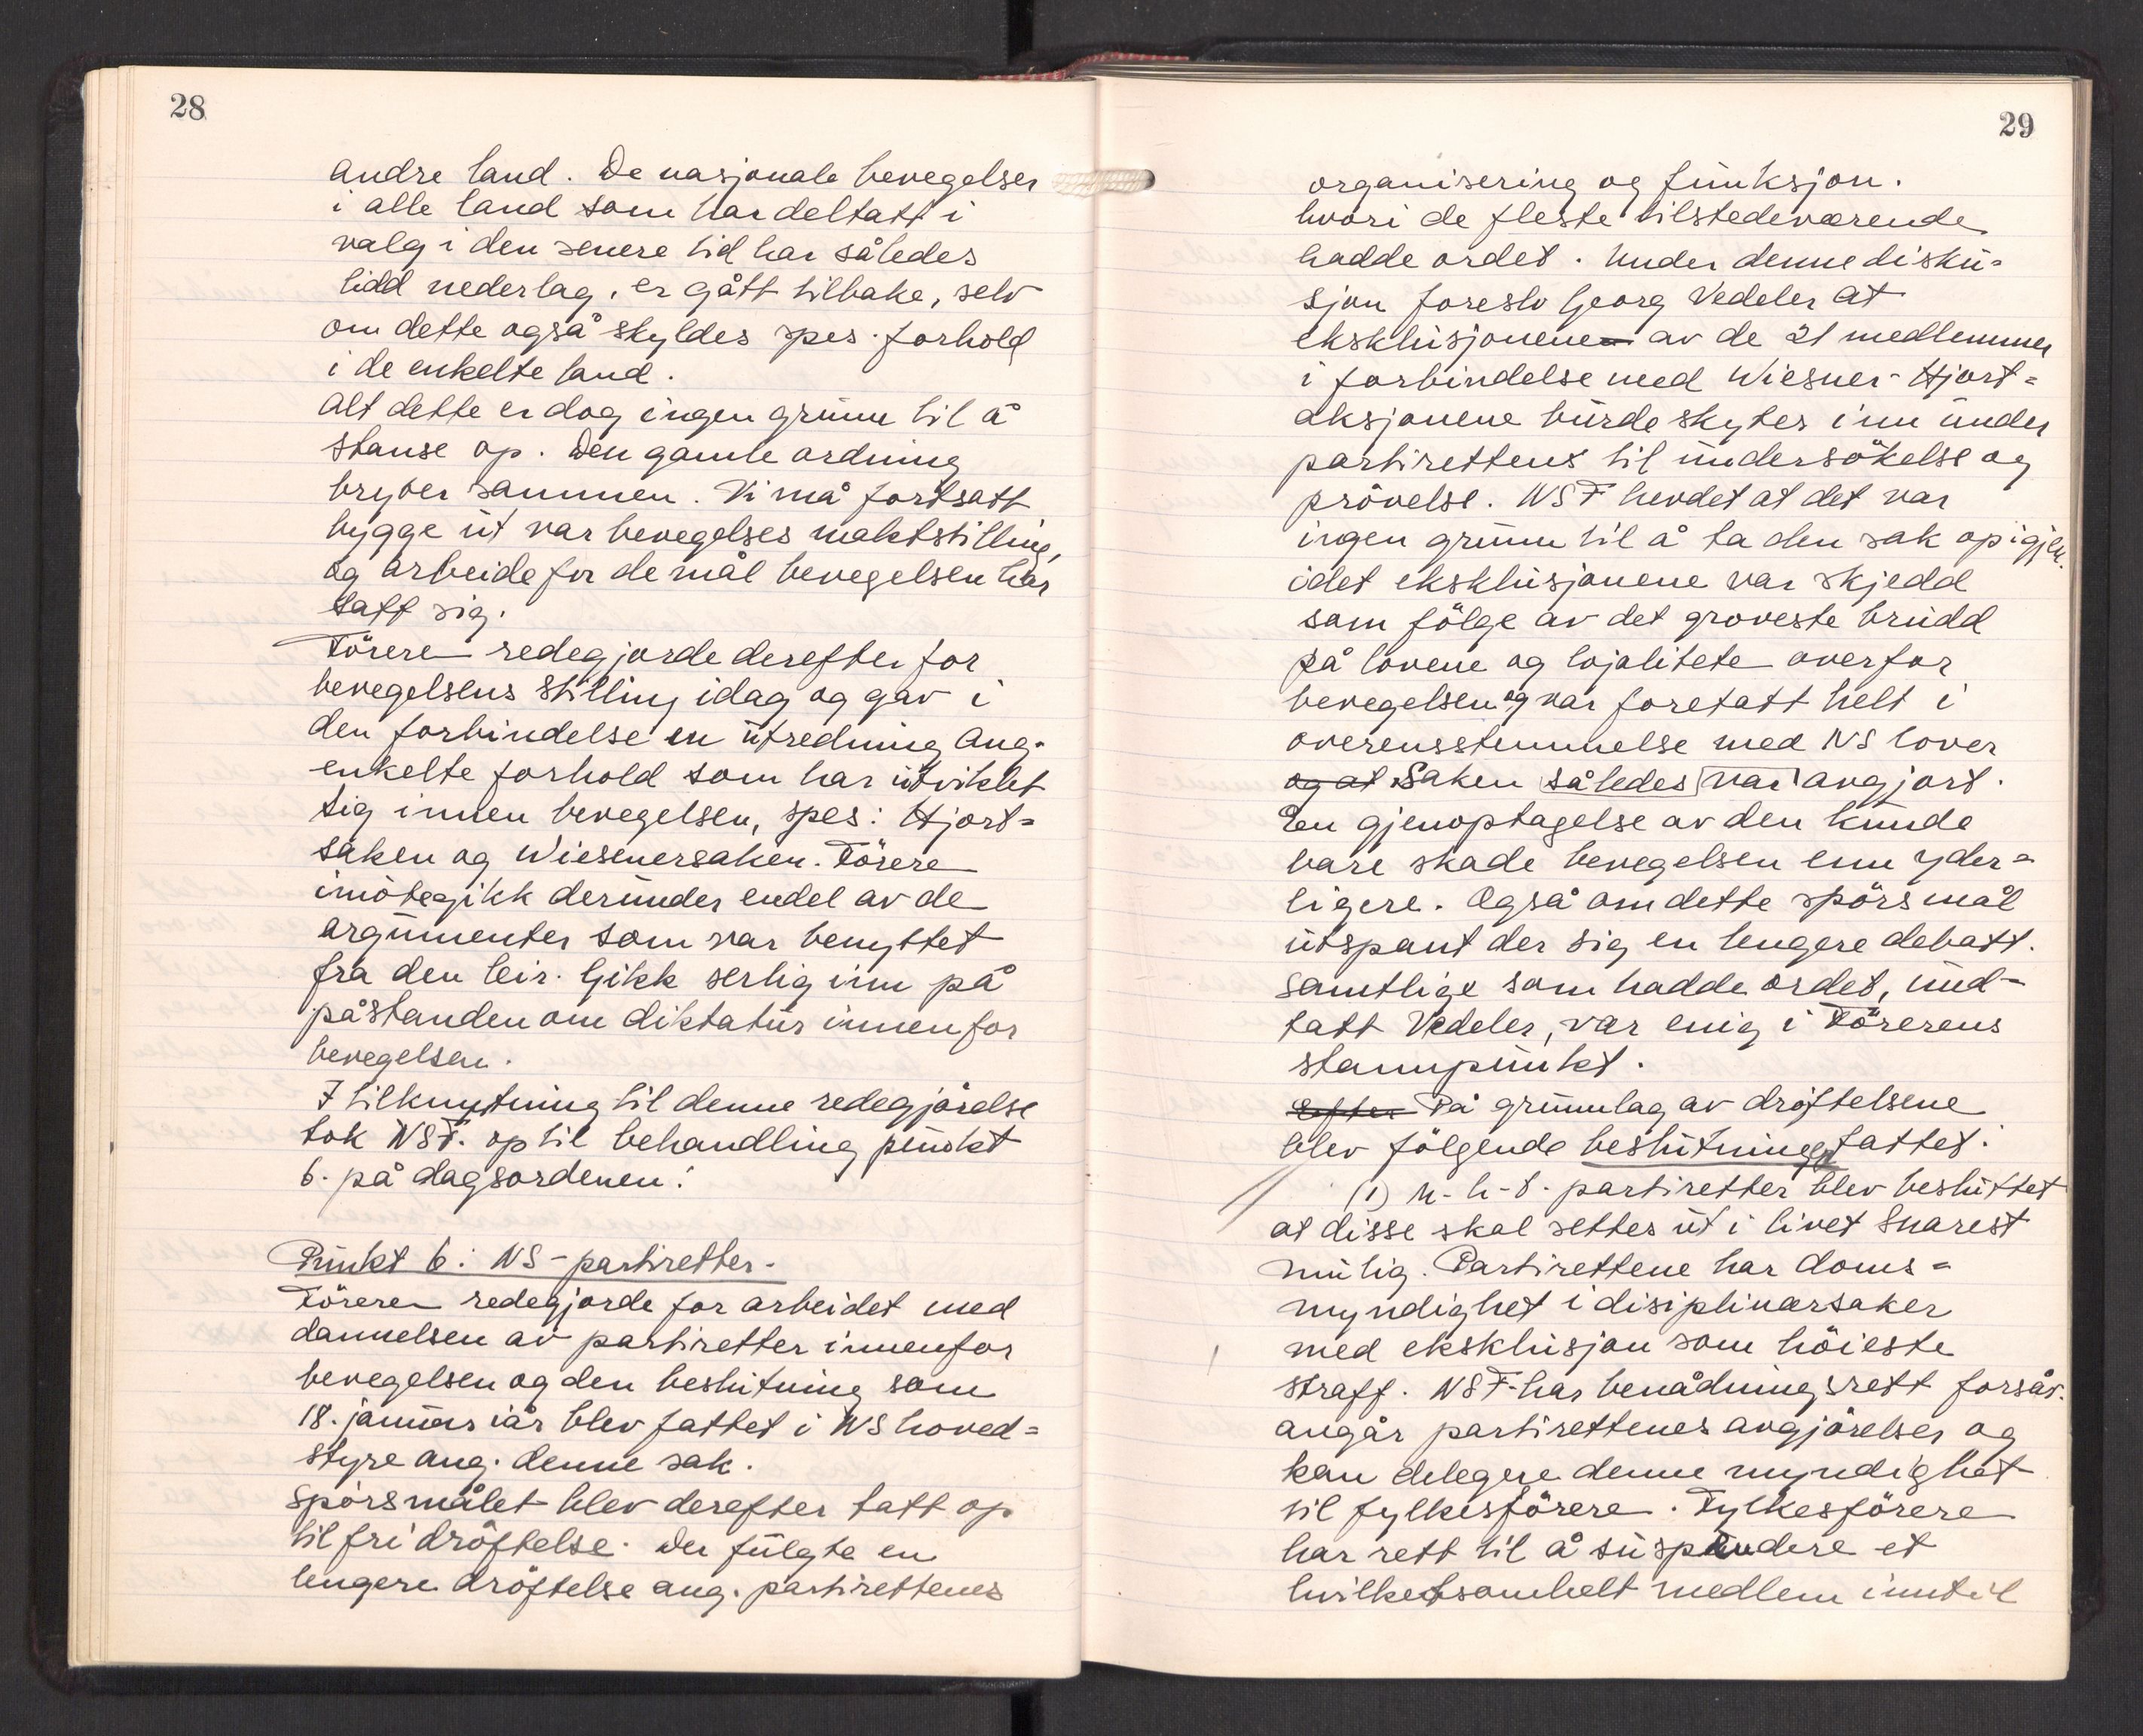 28
andre land. De nasjonale bevegelser
i alle land som har deltatt i
valg i den senere tid har således
lidd nederlag, er gått tilbake, selv
om dette også skyldes spes. forhold
i de enkelte land.
Alt dette er dog ingen grunn til å
stanse op. Den gamle ordning
bryter sammen. Vi må fortsatt
bygge ut vår bevegelses maktstilling,
og arbeide for de mål bevegelsen har
satt sig.
Föreren redegjorde derefter for
bevegelsens stilling idag og gav i
den forbindelse en utredning ang.
enkelte forhold som har utviklet
sig innen bevegelsen, spes: Hjort-
saken og Wiesenersaken. Förere
imötegikk derunder endel av de
argumenter som var benyttet
fra den leir. Gikk serlig inn på
påstanden om diktatur innenfor
bevegelsen.
I tilknytning til denne redegjörelse
tok NSF. op til behandling punkt
6. på dagsordenen:
Punkt 6: NS-partiretter.
Föreren redegjorde for arbeidet med
dannelsen av partiretter innenfor
bevegelsen og den beslutning som
18. januar iår blev fattet i NS hoved-
styre ang. denne sak.
Spörsmålet blev derefter tatt op
til fri dröftelse. Der fulgte en
lengere dröftelse ang. partirettenes
29
organisering og funksjon.
hvori de fleste tilstedeværende
hadde ordet. Under denne disku-
sjon foreslo Georg Vedeler at
eksklusjonene av de 21 medlemmer
i forbindelse med Wiesner-Hjort-
aksjonene burde skytes inn under
partirettens til undersökelse og
prövelse. NSF hevdet at det var
ingen grunn til å ta den sak op igjen.
idet eksklusjonene var skjedd
som fölge av det groveste brudd
på lovene og lojalitete overfor
bevegelsen og var foretatt helt i
overensstemmelse med NS lover
og at Saken således var avgjort.
En gjenoptagelse av den kunde
bare skade bevegelsen enn yder-
ligere. Også om dette spörsmål
utspant der sig en lengere debatt.
Samtlige som hadde ordet, und-
tatt Vedeler, var enig i Förerens
stannpunkt.
Efter På grunnlag av dröftelsene
blev fölgende beslutninger fattet:
(1) M-h-t. partiretter blev besluttet
at disse skal settes ut i livet snarest
mulig. Partirettene har doms-
myndighet i disiplinærsaker
med eksklusjon som höieste
straff. NSF har benådningsrett forsåv.
angår partirettenes avgjörelser og
kan delegere denne myndighet
til fylkesförere. Fylkesförere
har rett til å suspendere et
hvilketsomhelt medlem inntil